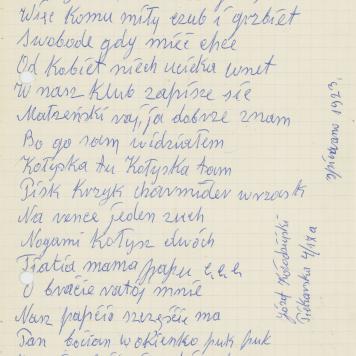 Więc komu miły czub i grzbiet
Swobode gdy mieć chce
Od Kobiet niech ucieka wnet
W nasz Klub zapisze sie
Małżeński raj, ja dobrze znam
Bo go sam widziałem
Kołyska tu Kołyska tam
Pisk Krzyk wrzask
Na rence jeden zuch
Nogami Kołysz dwóch
Tiatia mama papu e, e, e
O bracie ratój mnie
Nasz papcio szczęście ma
Pan bocian w okienko puk puk
spiewano 1923.
Józef
Piekarska 4/1xa